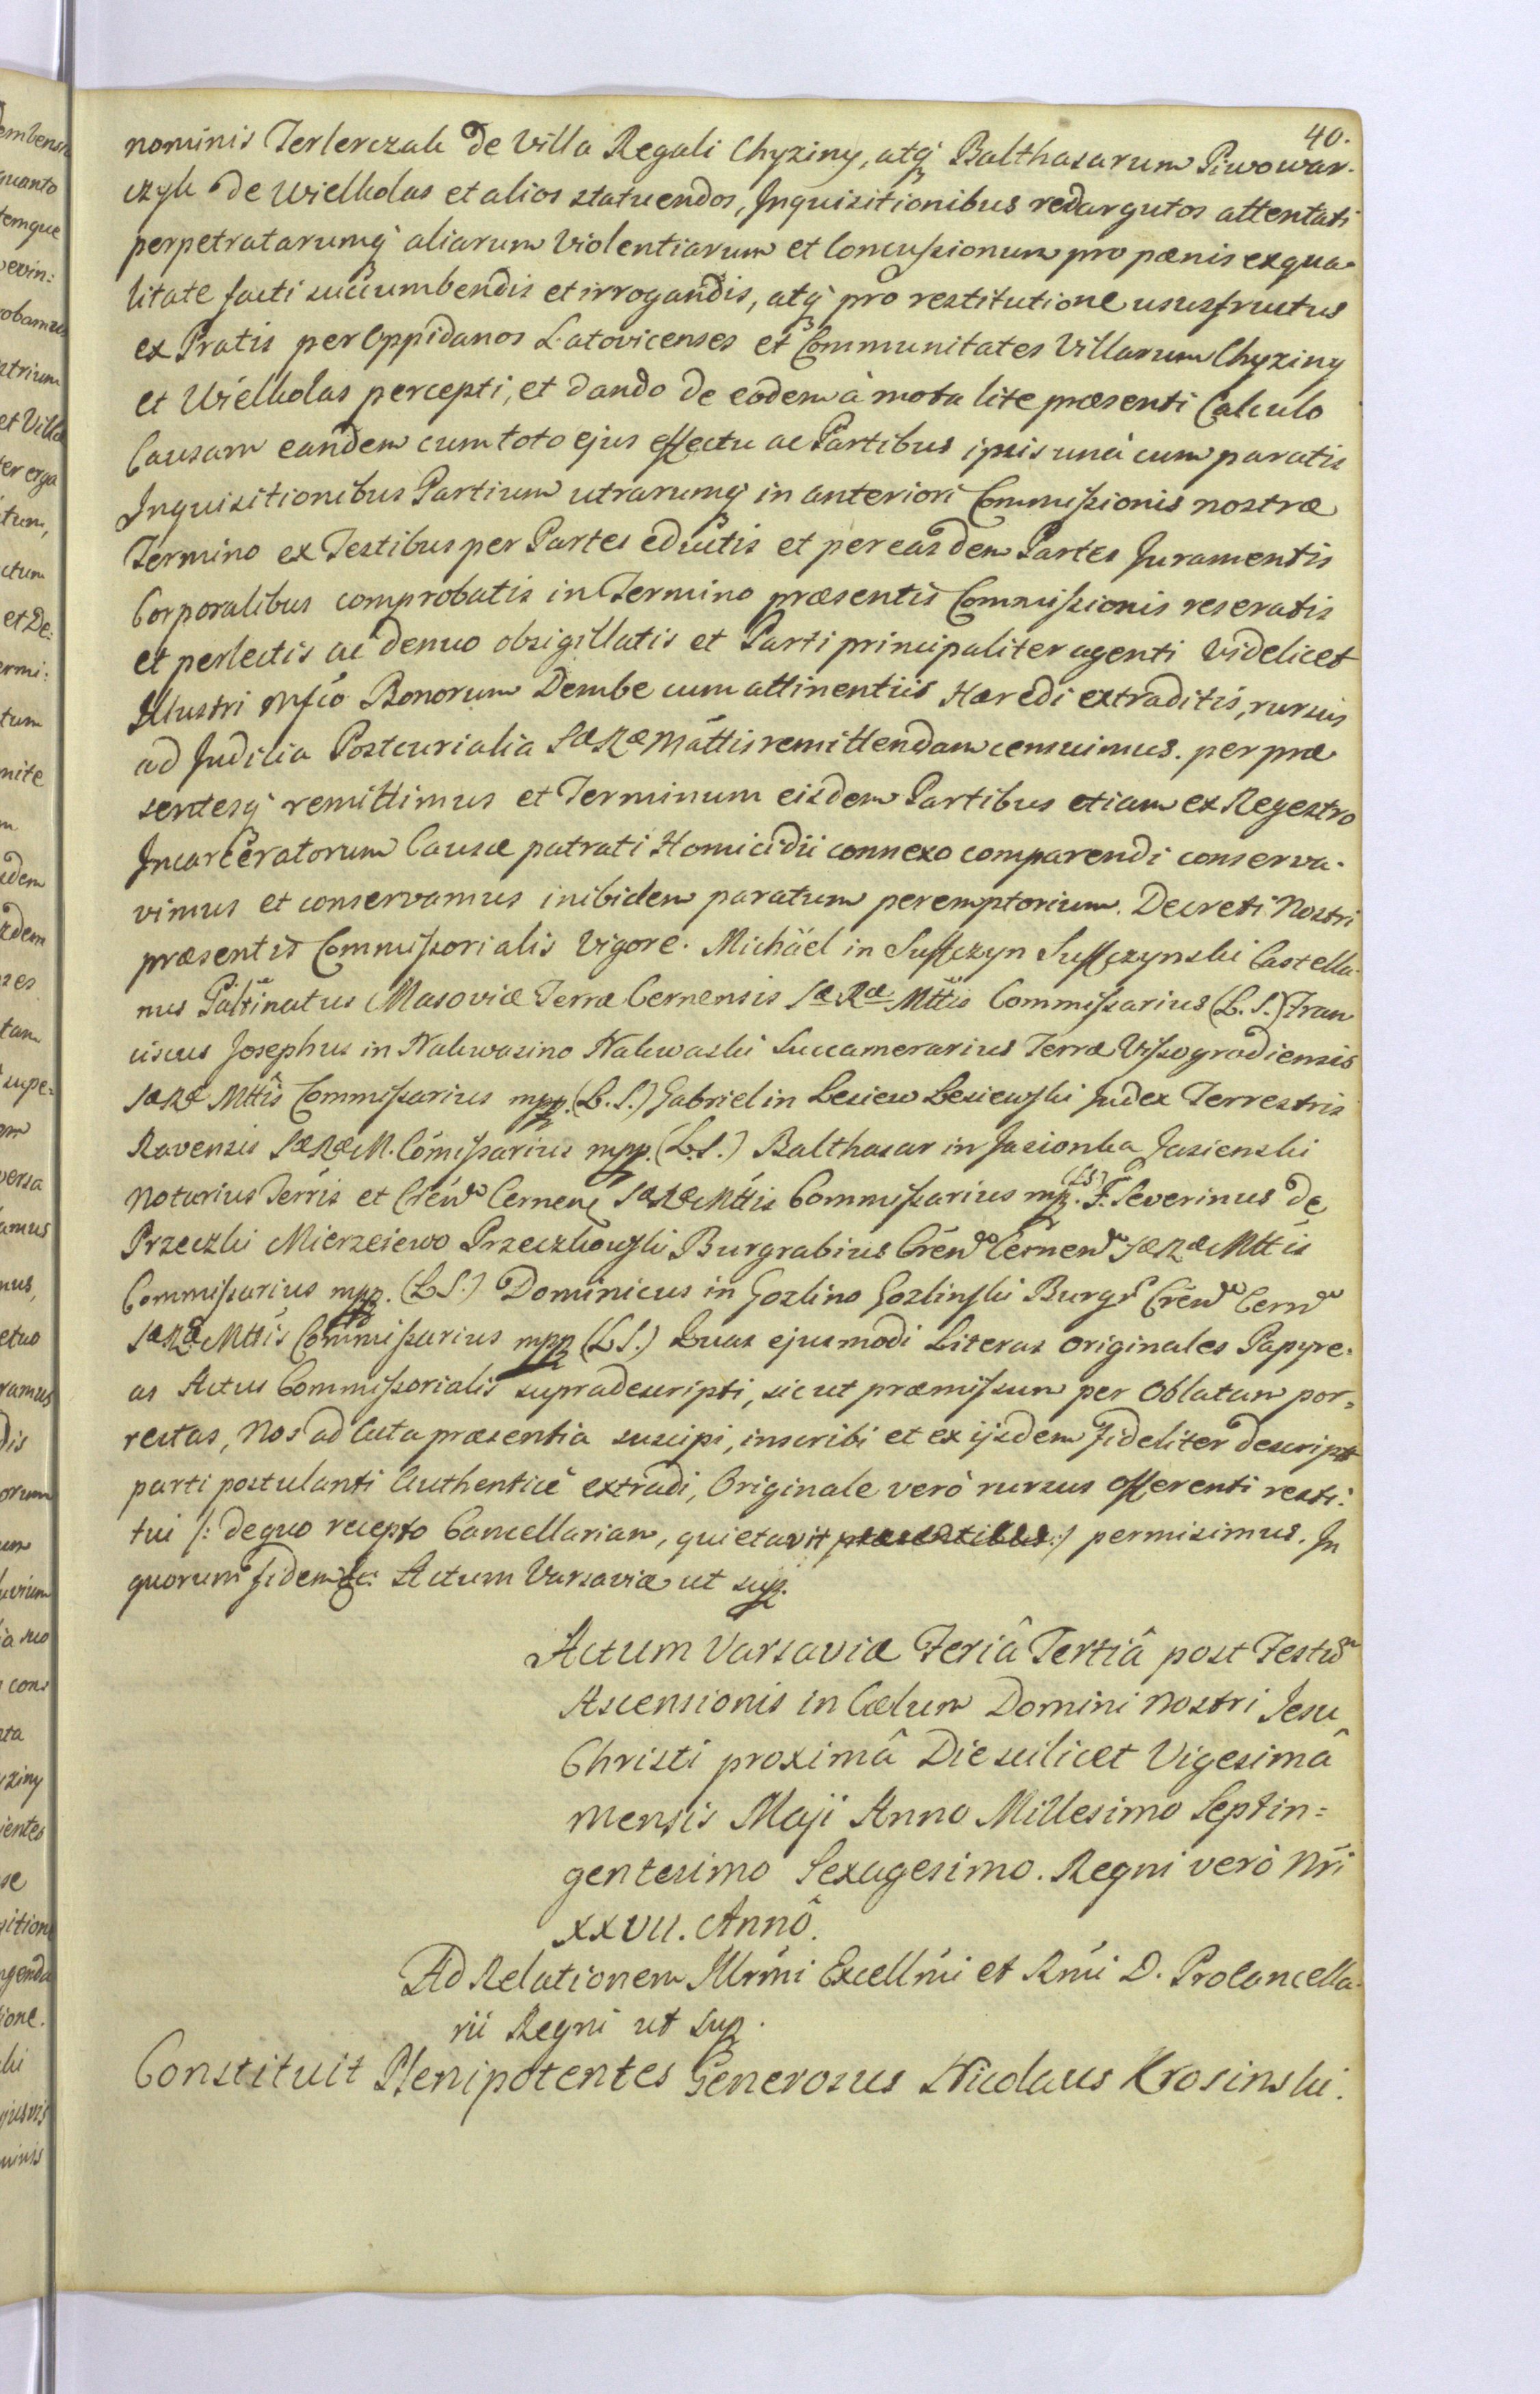 40.
nominis Terlerczak de Villa Regali Chyziny, atq₃ Balthasarum Piwowar-
czyk de Wielkolas et alios statuendos, Inquisitionibus redargutos attentati
perpetratarumq₃ aliarum Violentiarum et Concussionum pro pænis ex qua-
litate facti succumbendis et irrogandis, atq₃ pro restitutione ususfructus
ex Pratis per Oppidanos Latovicenses et Communitates Villarum Chyziny
et Wielkolas percepti, et dando de eodem à mota lite præsenti Calculo
Causam eandem cum toto ejus effectu ac Partibus ipsis unà cum paratis
Inquisitionibus Partium utrarumq₃ in anteriori Commissionis nostræ
Termino ex Testibus per Partes eductis et per easdem Partes Juramentis
Corporalibus comprobatis in Termino præsentis Commissionis reseratis
et perlectis ac denuo obsigillatis et Parti principaliter agenti videlicet
Illustri Mfico Bonorum Dembe cum attinentiis Hæredi extraditis, rursus
ad Judicia Postcurialia SæRæ Mattis remittendam censuimus. per præ
sentesq₃ remittimus et Terminum eisdem Partibus etiam ex Regestro
Incarceratorum Causæ patrati Homicidii connexo comparendi conserva-
vimus et conservamus inibidem paratum peremptorium. Decreti Nostri
præsentis Commissorialis Vigore. Michäel in Suffczyn Suffczynski Castella-
nus Paltinatus Masoviæ Terræ Cernensis Sæ Ræ Mttis Commissarius (L.S.) Fran
ciscus Josephus in Nakwasino Nakwaski Succamerarius Terræ Vissogradiensis
SæRæ Mttis Commissarius mpp. (L.S.) Gabriel in Lesiew Lesiewski Judex Terrestris
Ravensis SæRæM. Comissarius mpp. (L.S.) Balthasar in Jasionka Jasienski
Notarius Terris et Cren Cernen SæRæMttis Commissarius mpp. (LS) F. Severinus de
Przeczki Mierzeiewo Przeczkowski Burgrabius Cren Cernen SæRæMttis
Commissarius mpp. (L.S.) Dominicus in Gozlino Gozlinski Burgs Cren Cern
SæRæ Mttis Commissarius mpp (L.S.) Quas ejusmodi Literas Originales Papyre-
as Actus Commissorialis supradescripti, sicut præmissum per Oblatam por=
rectas, Nos ad Acta præsentia suscipi, inscribi et ex ijsdem fideliter descript
parti postulanti Authenticè extradi, Originale verò rursus Offerenti resti:
tui /: de quo recepto Cancellariam, quietavit præsentibus:/ permisimus. In
quorum fidem &c: Actum Varsaviæ ut sup.
Actum Varsaviæ Feriâ Tertiâ post Festum
Ascensionis in Cælum Domini Nostri Jesu
Christi proximâ Die scilicet Vigesimâ
mensis Maji Anno Millesimo Septin=
gentesimo Sexagesimo. Regni verò Nri
XXVII. Annô.
Ad Relationem Illrmi Excellmi et Rmi D. Procancella-
rii Regni ut sup.
Constituit Plenipotentes Generosus Nicolaus Krosinski.